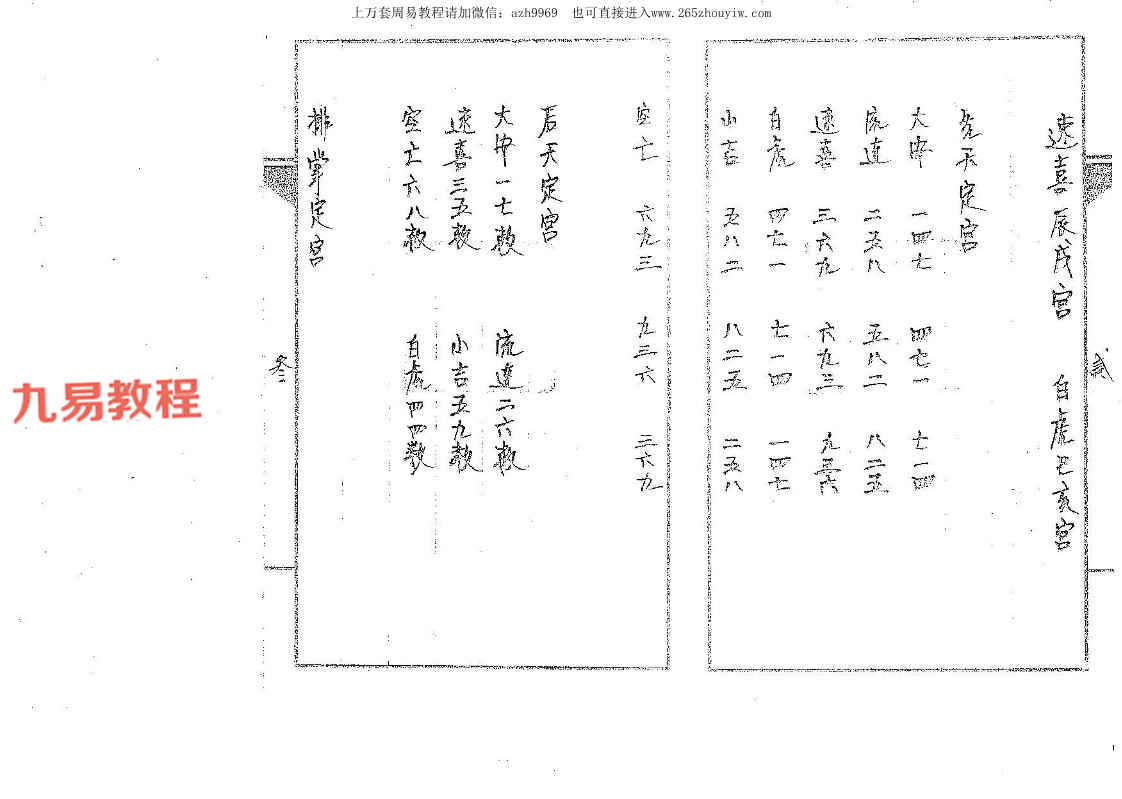 上万套周易教程请加微信：azh9969 也可直接进入www.265zhouyiw.com
速喜辰戌宫 白虎巳亥宫
先天定宫
大安 一四七 四七一 七一四
流连 二五八 五八二 八二五
速喜 三六九 六九三 九三六
白虎 四七一 七一四 一四七
小吉 五八二 八二五 二五八
贰
空亡 六九三 九三六 三六九
后天定宫
大安一七数 流连二六数
速喜三五数 小吉五九数
空亡六八数 白虎四四数
排掌定宫
叁
九易教程